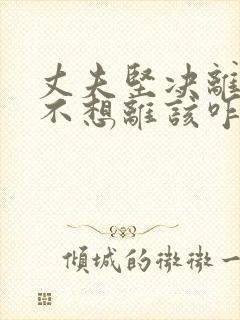 丈夫堅决離
不想離該咋
傾城的微微一